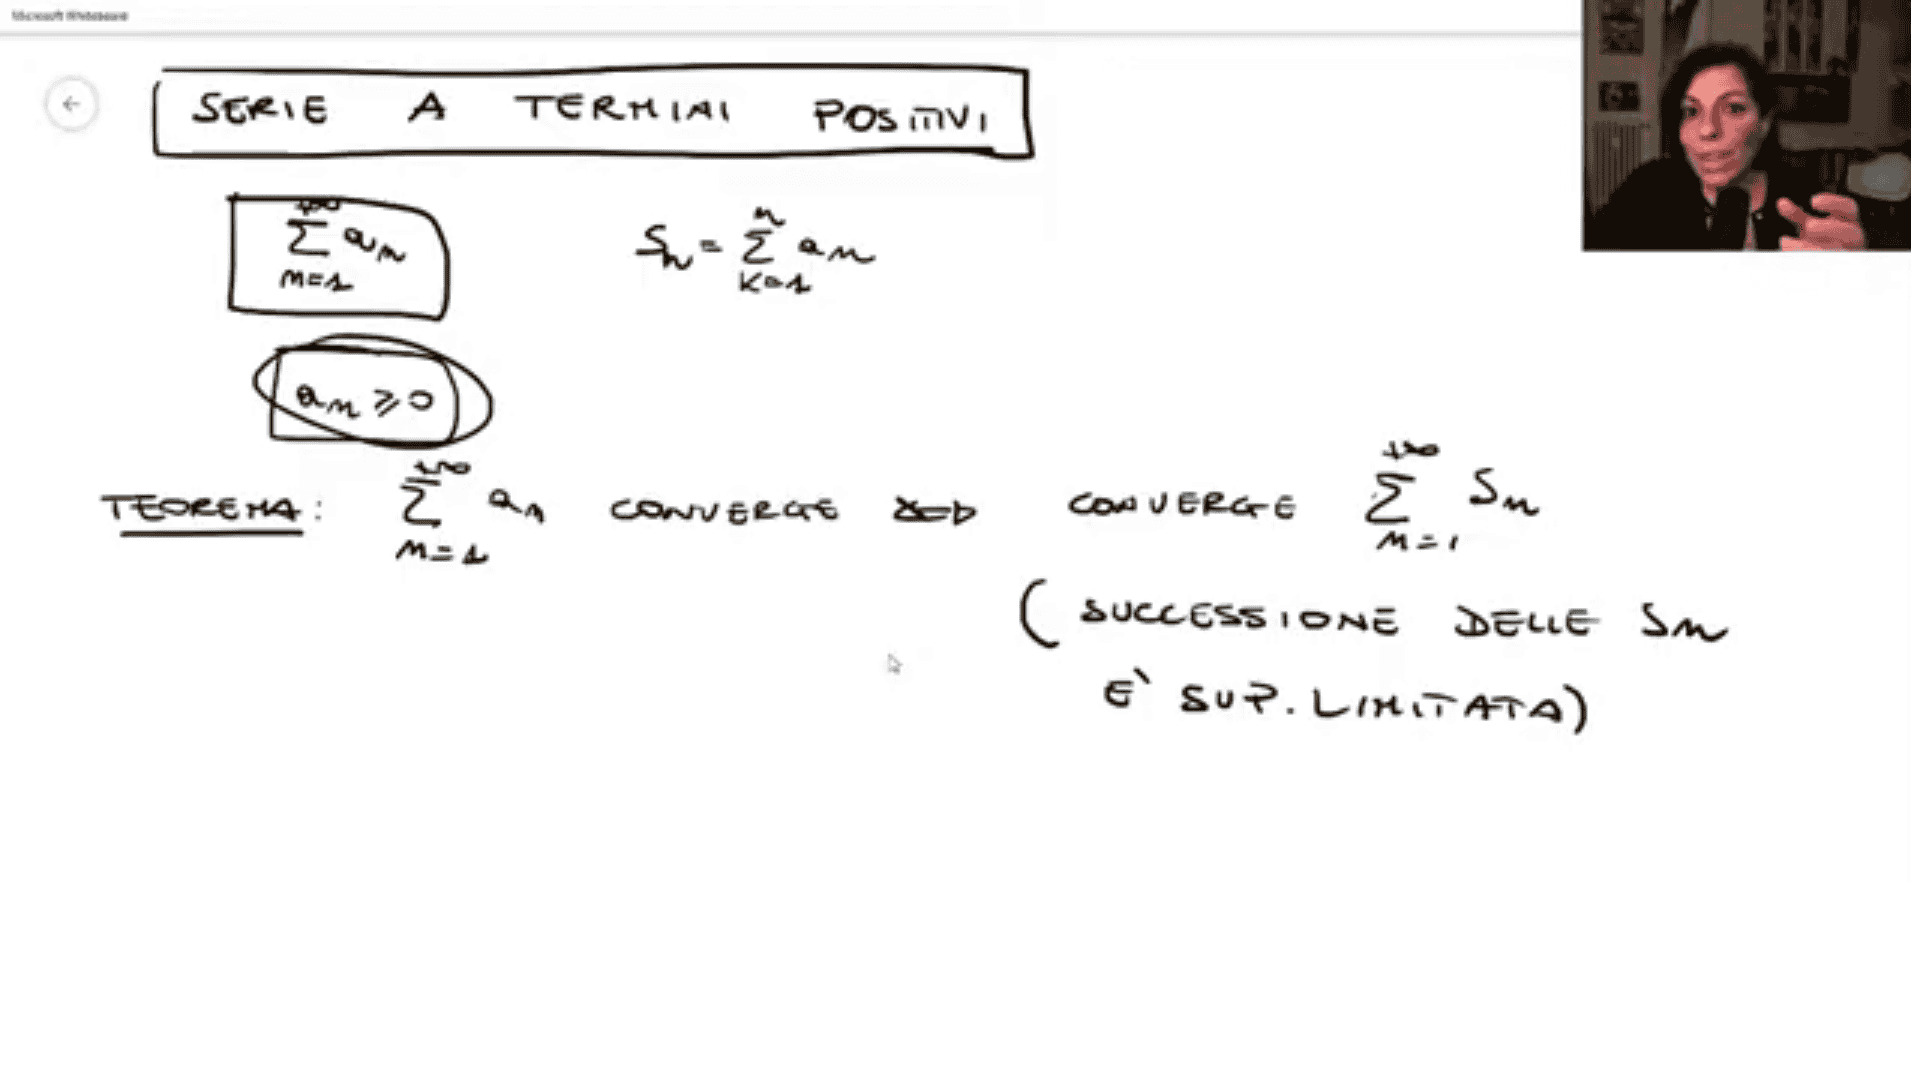 Microsoft Whiteboard
SERIE A TERMINI POSITIVI
+∞
Σ an
n=1
n
Sn = Σ an
k=1
an ≥ 0
+∞
TEOREMA: Σ an CONVERGE <=> CONVERGE Σ Sn
n=1
+∞
n=1
(SUCCESSIONE DELLE Sn
E' SUP. LIMITATA)